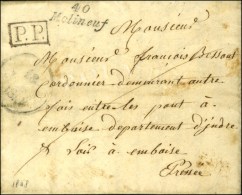 40
Molineuf
Monsieur
P.P.
Monsieur François Besson
Cordonnier demeurant autre
fois entre les pont à
embaise departement d'indre
& lois à embaise
Presser
1843